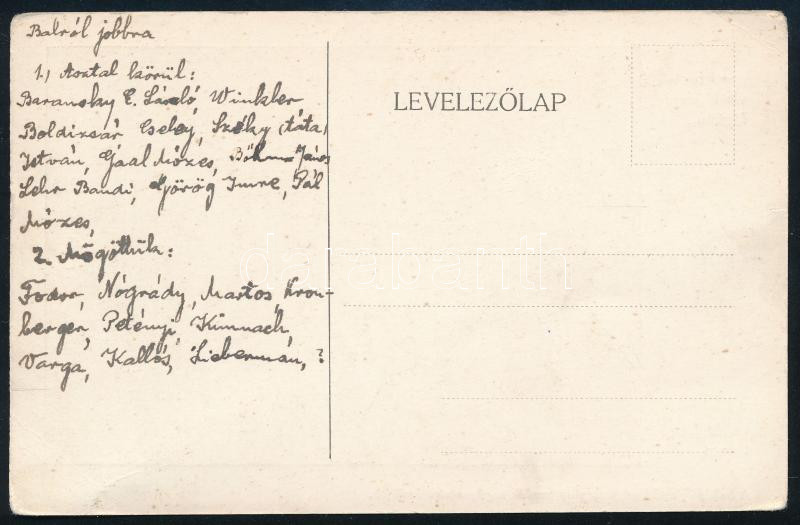 Balról jobbra
1.) Asztal körül:
Baransky E. László, Winkler
Boldizsár Cseley, Széky (táta)
István, Gaal Mózes, Böhm János
Lehr Bandi, Görög Imre, Pál
Mózes,
2. Mögöttük:
Fodor, Nógrády, Martos, Kron-
berger, Petényi, Kimnach,
Varga, Kallós, Lieberman, ?
LEVELEZŐLAP
darabanth